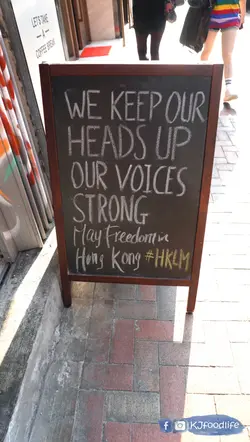 LET'S TAKE
A
COFFEE BREAK
WE KEEP OUR
HEADS UP
OUR VOICES
STRONG
May Freedom in
Hong Kong #HKLM
KJfoodlife